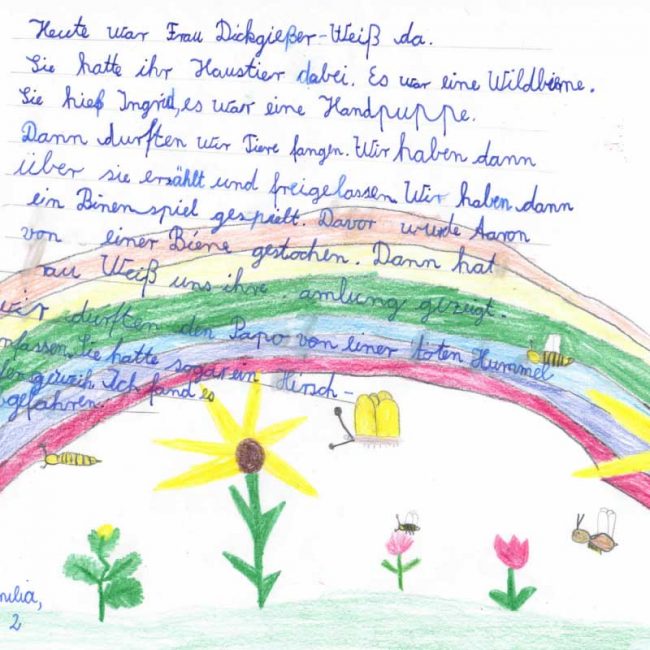 Heute war Frau Dickgießer-Weiß da.
Sie hatte ihr Haustier dabei. Es war eine Wildbiene.
Sie hieß Ingrid, es war eine Handpuppe.
Dann durften wir Tiere fangen. Wir haben dann
über sie erzählt und freigelassen. Wir haben dann
ein Binenspiel gespielt. Davor wurde Aaron
von einer Biene gestochen. Dann hat
rau Weiß uns ihre amlung gezeigt.
wir durften den Papo von einer toten Hummel
nfassen. Sie hatte sogar ein Hirsch-
fer geweih. Ich fand es
bgefahren.
milia,
2